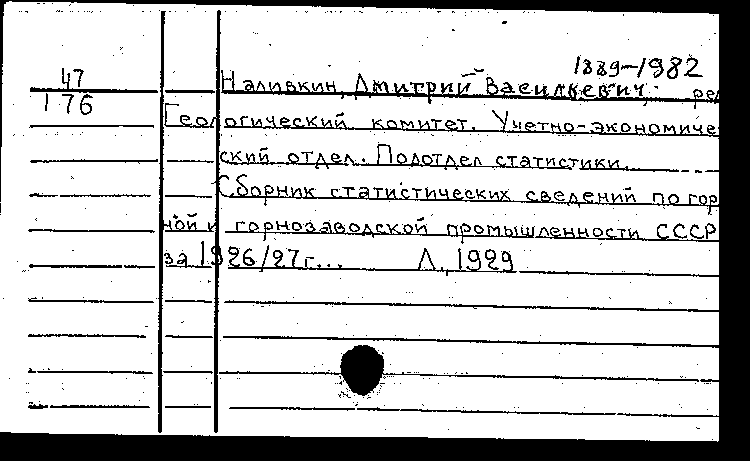 1889-1982
47 Наливкин, Дмитрий Васильевич, ред
176
Геологический комитет. Учетно-экономиче
ский отдел. Подотдел статистики.
Сборник статистических сведений по гор
ной и горнозаводской промышленности СССР
за 1926/27г... Л., 1929